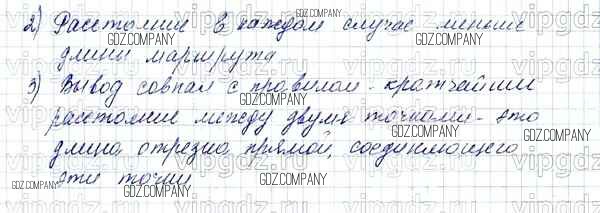 2) Расстояние в каждом случае меньше
длины маршрута
3) Вывод совпал с правилом - кратчайшим
расстояние между двумя точками - это
длина отрезка прямой, соединяющего
эти точки
GDZ.COMPANY
GDZ.COMPANY
GDZ.COMPANY
GDZ.COMPANY
GDZ.COMPANY
GDZ.COMPANY
GDZ.COMPANY
GDZ.COMPANY
GDZ.COMPANY
GDZ.COMPANY
vipgdz
vipgdz
vipgdz